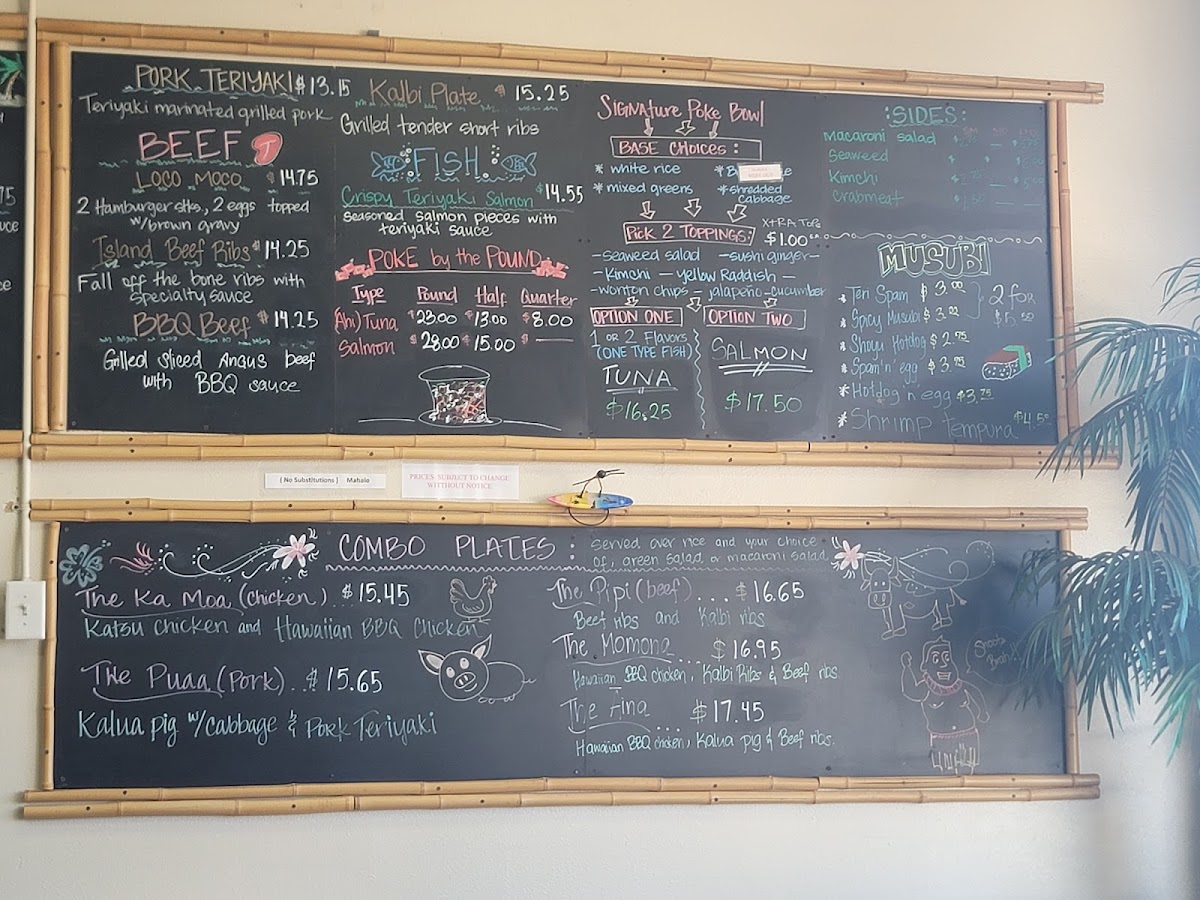 PORK TERIYAKI $13.15
Teriyaki marinated grilled pork
BEEF
LOCO MOCO $14.75
2 Hamburger stks., 2 eggs topped
w/brown gravy
Island Beef Ribs $14.25
Fall off the bone ribs with
specialty sauce
BBQ Beef $14.25
Grilled sliced Angus beef
with BBQ sauce
Kalbi Plate $15.25
Grilled tender short ribs
FISH
Crispy Teriyaki Salmon $14.55
seasoned salmon pieces with
teriyaki sauce
POKE by the POUND
Type Pound Half Quarter
(Ahi) Tuna $23.00 $13.00 $8.00
Salmon $28.00 $15.00 $
SIGNATURE Poke Bowl
BASE CHOICES:
* white rice
* mixed greens
* shredded
cabbage
Pick 2 TOPPINGS:
XTRA Tops
$1.00 ea
-seaweed salad -sushi ginger-
-Kimchi - yellow Raddish -
-wonton chips - jalapeño -cucumber
OPTION ONE
1 OR 2 Flavors
(ONE TYPE FISH)
TUNA
$16.25
OPTION TWO
SALMON
$17.50
:SIDES:
Macaroni salad
Seaweed
Kimchi
Crabmeat
MUSUBI
* Teri Spam $3.00
* Spicy Musubi
* Shoyu Hotdog $2.75
* Spam 'n' egg $3.75
* Hotdog n egg $3.75
* Shrimp Tempura $4.50
2 for
( No Substitutions ) Mahalo
PRICES SUBJECT TO CHANGE
WITHOUT NOTICE
COMBO PLATES:
Served over rice and your choice
of, green salad or macaroni salad
The Ka Moa (chicken) .. $15.45
Katsu chicken and Hawaiian BBQ Chicken
The Puaa (Pork) .. $15.65
Kalua pig w/cabbage & Pork Teriyaki
The Pipi (beef) .... $16.65
Beef ribs and Kalbi ribs
The Momona .... $16.95
Hawaiian BBQ chicken, Kalbi Ribs & Beef ribs
The Aina .... $17.45
Hawaiian BBQ chicken, Kalua pig & Beef ribs.
Shoots
Brah!